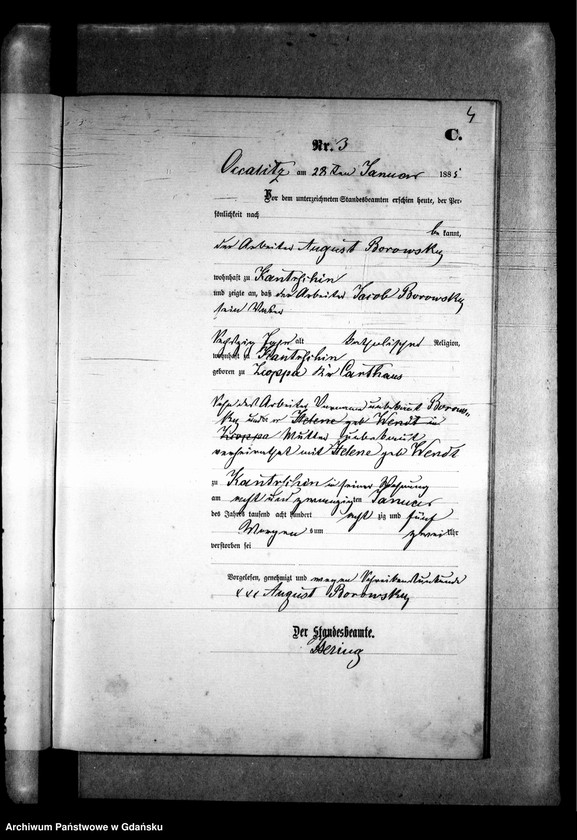 4
C.
Nr. 3
Occalitz am 28ten Januar 1885
Vor dem unterzeichneten Standesbeamten erschien heute, der Per-
sönlichkeit nach
bekannt,
der Arbeiter August Borowsky
wohnhaft zu Kantrschin
und zeigte an, daß der Arbeiter Jacob Borowsky
sein Vater
Sechszig Jahr alt katholischer Religion,
wohnhaft zu Kantrschin
geboren zu Zoppa Kr Carthaus
Sohn des Arbeiter Vorname unbekant Borow-
sky und Helene geb Wendt in
Zoppa Mutter unbekant
verheirathet mit Helene geb Wendt
zu Kantrschin in seiner Wohnung
am acht und zwanzigsten Januar
des Jahres tausend acht hundert acht zig und fünf
Morgens um zwei Uhr
verstorben sei
Vorgelesen, genehmigt und wegen Schreibensunkunde
xxx August Borowsky
Der Standesbeamte.
Hering
Archiwum Państwowe w Gdańsku